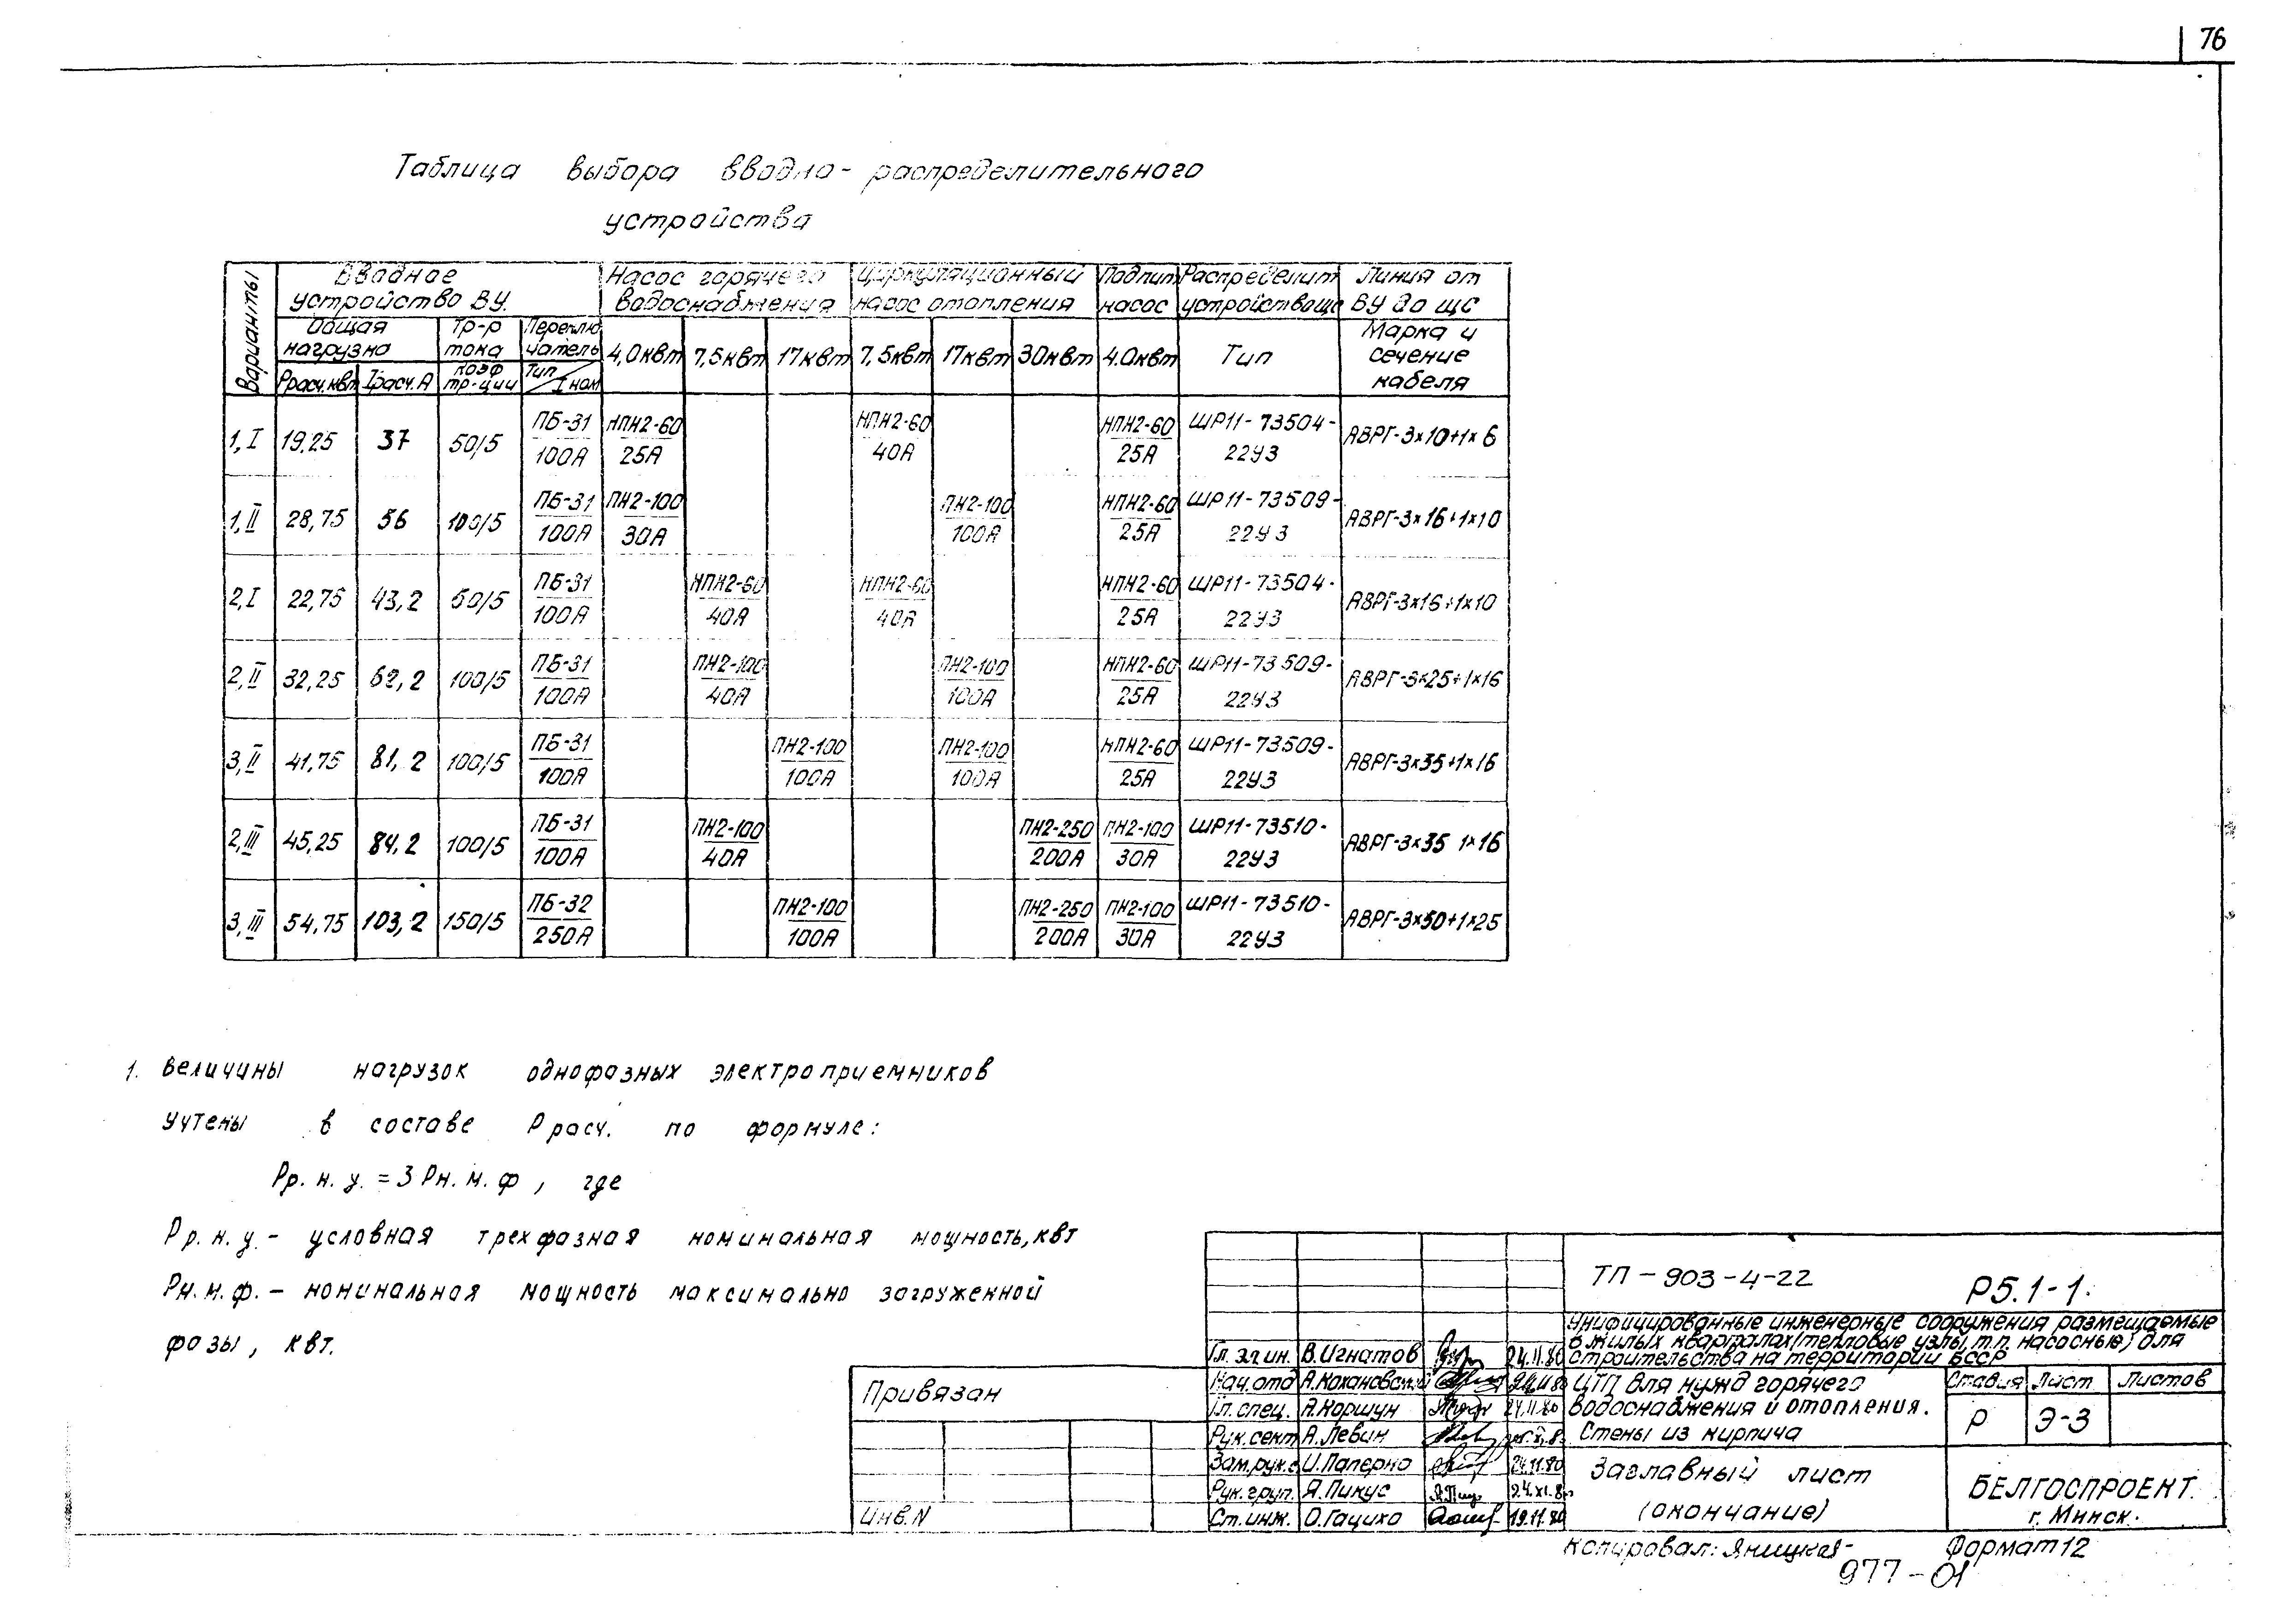 76
Таблица выбора вводно-распределительного
устройства
Варианты
Вводное
устройство ВУ.
Насос горячего
водоснабжения
Циркуляционный
насос отопления
Подпит
насос
Распределит
устройство щс
Линия от
ВУ до щс
Общая
нагрузка
Тр-р
тока
Переклю
чатель
4,0квт 7,5квт 17квт 7,5квт 17квт 30квт 4.0квт
Тип
Марка и
сечение
кабеля
Ррасч.квт Iрасч.А
коэф
тр-ции
Тип
I ном
1,I 19,25 37 50/5 ПБ-31/100А НПН2-60/25А НПН2-60/40А НПН2-60/25А ШР11-73504-22У3 АВРГ-3×10+1×6
1,II 28,75 56 100/5 ПБ-31/100А ПН2-100/30А ПН2-100/100А НПН2-60/25А ШР11-73509-22У3 АВРГ-3×16+1×10
2,I 22,75 43,2 50/5 ПБ-31/100А НПН2-60/40А НПН2-60/40А НПН2-60/25А ШР11-73504-22У3 АВРГ-3×16+1×10
2,II 32,25 62,2 100/5 ПБ-31/100А ПН2-100/40А ПН2-100/100А НПН2-60/25А ШР11-73509-22У3 АВРГ-3×25+1×16
3,II 41,75 81,2 100/5 ПБ-31/100А ПН2-100/100А ПН2-100/100А НПН2-60/25А ШР11-73509-22У3 АВРГ-3×35+1×16
2,III 45,25 84,2 100/5 ПБ-31/100А ПН2-100/40А ПН2-250/200А ПН2-100/30А ШР11-73510-22У3 АВРГ-3×35 1×16
3,III 54,75 103,2 150/5 ПБ-32/250А ПН2-100/100А ПН2-250/200А ПН2-100/30А ШР11-73510-22У3 АВРГ-3×50+1×25
1. Величины нагрузок однофазных электроприемников
учтены в составе Р расч. по формуле:
Рр.н.у. = 3 Рн.м.ф, где
Рр.н.у. - условная трехфазная номинальная мощность, квт
Рн.м.ф. - номинальная мощность максимально загруженной
фазы, квт.
ТП-903-4-22 Р5.1-1.
Унифицированные инженерные сооружения размещаемые
в жилых кварталах (тепловые узлы, т.п. насосные) для
строительства на территории БССР
Гл. эл ин. В.Игнатов 24.11.80
Нач.отд А.Кохановский
Гл.спец. А.Коршун 24.11.80
Рук.сект А.Левин
Зам.рук.с И.Паперно 24.11.80
Рук.груп. Я.Пикус 24.XI.8
Ст.инж. О.Гацихо 19.11.80
ЦТП для нужд горячего
водоснабжения и отопления.
Стены из кирпича
Стадия Лист Листов
Р Э-3
Заглавный лист
(окончание)
БЕЛГОСПРОЕКТ.
г. Минск.
Привязан
Инв.N
Копировал: Яницкая-
Формат12
977-01